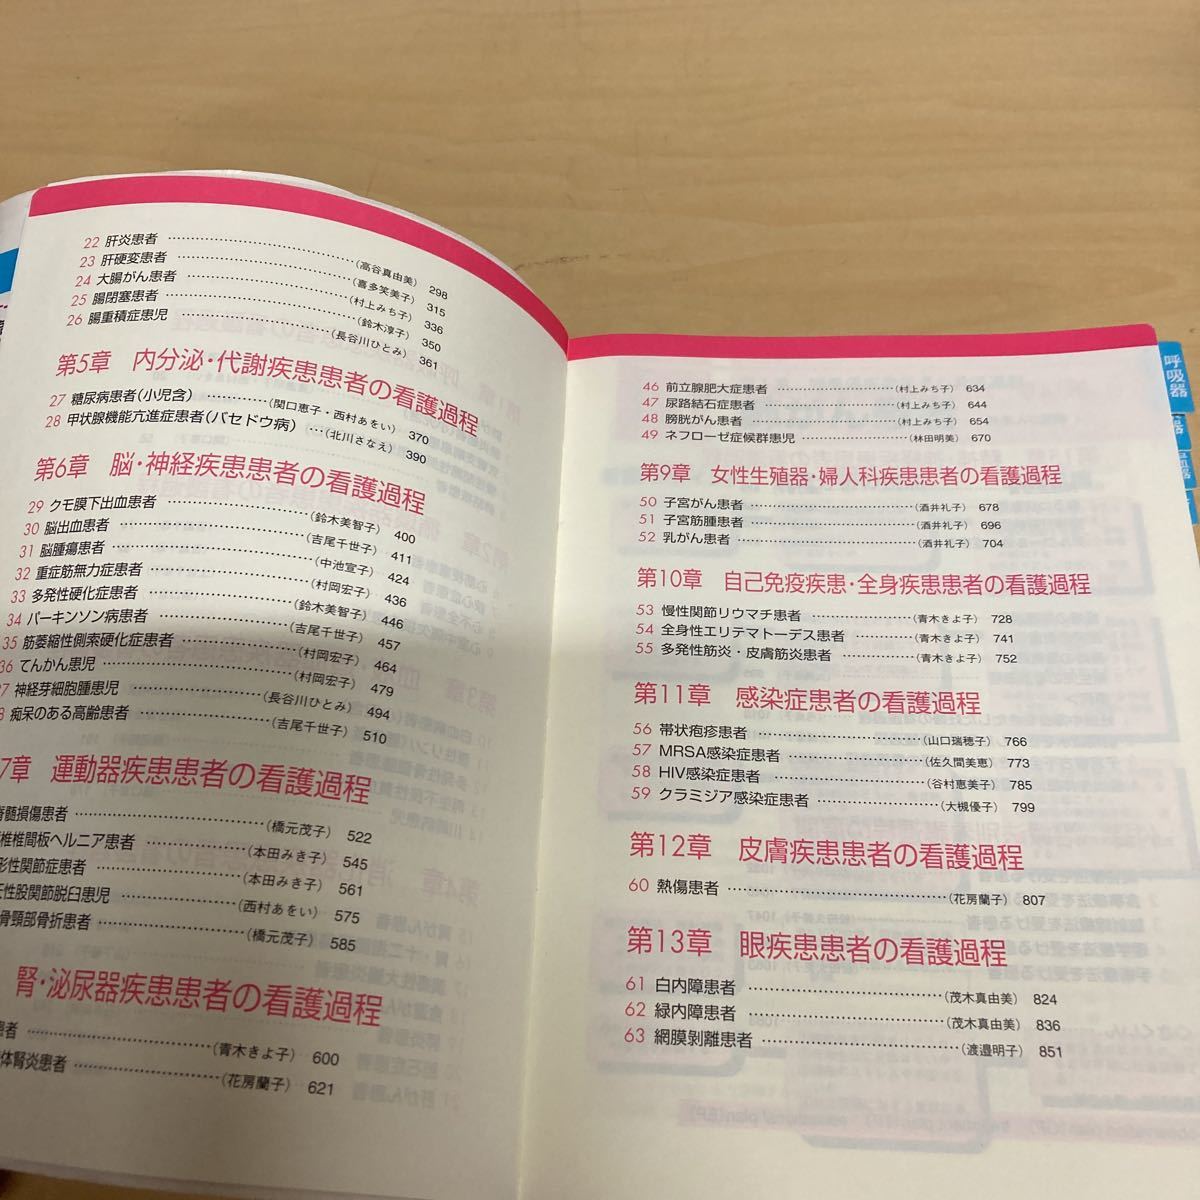 22 肝炎患者 ……(高谷真由美) 298
23 肝硬変患者 ……(喜多笑美子) 315
24 大腸がん患者 ……(村上みち子) 336
25 腸閉塞患者 ……(鈴木淳子) 350
26 腸重積症患児 ……(長谷川ひとみ) 361
第5章 内分泌・代謝疾患患者の看護過程
27 糖尿病患者(小児含) ……(関口恵子・西村あをい) 370
28 甲状腺機能亢進症患者(バセドウ病) …(北川さなえ) 390
第6章 脳・神経疾患患者の看護過程
29 クモ膜下出血患者 ……(鈴木美智子) 400
30 脳出血患者 ……(吉尾千世子) 411
31 脳腫瘍患者 ……(中池宣子) 424
32 重症筋無力症患者 ……(村岡宏子) 436
33 多発性硬化症患者 ……(鈴木美智子) 446
34 パーキンソン病患者 ……(吉尾千世子) 457
35 筋萎縮性側索硬化症患者 ……(村岡宏子) 464
36 てんかん患児 ……(村岡宏子) 479
神経芽細胞腫患児 ……(長谷川ひとみ) 494
痴呆のある高齢患者 ……(吉尾千世子) 510
7章 運動器疾患患者の看護過程
脊髄損傷患者 ……(橋元茂子) 522
椎間板ヘルニア患者 ……(本田みき子) 545
形性関節症患者 ……(本田みき子) 561
性股関節脱臼患児 ……(西村あをい) 575
骨頸部骨折患者 ……(橋元茂子) 585
腎・泌尿器疾患患者の看護過程
患者 ……(青木きよ子) 600
体腎炎患者 ……(花房蘭子) 621
46 前立腺肥大症患者 ……(村上みち子) 634
47 尿路結石症患者 ……(村上みち子) 644
48 膀胱がん患者 ……(村上みち子) 654
49 ネフローゼ症候群患児 ……(林田明美) 670
第9章 女性生殖器・婦人科疾患患者の看護過程
50 子宮がん患者 ……(酒井礼子) 678
51 子宮筋腫患者 ……(酒井礼子) 696
52 乳がん患者 ……(酒井礼子) 704
第10章 自己免疫疾患・全身疾患患者の看護過程
53 慢性関節リウマチ患者 ……(青木きよ子) 728
54 全身性エリテマトーデス患者 ……(青木きよ子) 741
55 多発性筋炎・皮膚筋炎患者 ……(青木きよ子) 752
第11章 感染症患者の看護過程
56 帯状疱疹患者 ……(山口瑞穂子) 766
57 MRSA感染症患者 ……(佐久間美恵) 773
58 HIV感染症患者 ……(谷村恵美子) 785
59 クラミジア感染症患者 ……(大槻優子) 799
第12章 皮膚疾患患者の看護過程
60 熱傷患者 ……(花房蘭子) 807
第13章 眼疾患患者の看護過程
61 白内障患者 ……(茂木真由美) 824
62 緑内障患者 ……(茂木真由美) 836
63 網膜剝離患者 ……(渡邉明子) 851
呼吸器